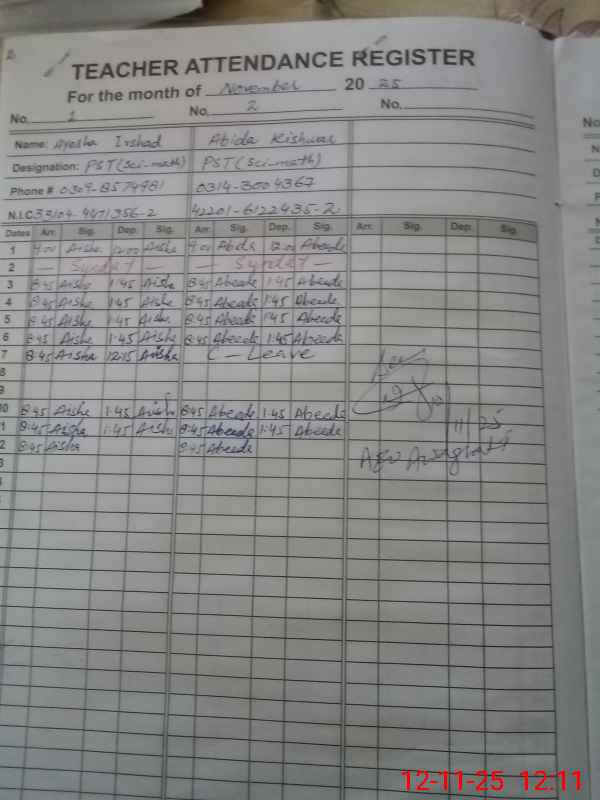 TEACHER ATTENDANCE REGISTER
For the month of November 2025
No. 1 No. 2 No.
Name: Ayesha Irshad Abida Kishwar
Designation: PST (Sci-math) PST (Sci-math)
Phone # 0309-8579981 0314-3004367
N.I.C 33104-4471356-2 42201-6122435-2
Dates Arr. Sig. Dep. Sig. Arr. Sig. Dep. Sig. Arr. Sig. Dep. Sig.
1 9:00 Aisha 12:00 Aisha 9:00 Abida 12:00 Abeeda
2 — Sunday — — Sunday —
3 8:45 Aisha 1:45 Aisha 8:45 Abeeda 1:45 Abeeda
4 8:45 Aisha 1:45 Aisha 8:45 Abeeda 1:45 Abeeda
5 8:45 Aisha 1:45 Aisha 8:45 Abeeda 1:45 Abeeda
6 8:45 Aisha 1:45 Aisha 8:45 Abeeda 1:45 Abeeda
7 8:45 Aisha 12:15 Aisha C — Leave
8
9
10 8:45 Aisha 1:45 Aisha 8:45 Abeeda 1:45 Abeeda
1 8:45 Aisha 1:45 Aisha 8:45 Abeeda 1:45 Abeeda
2 8:45 Aisha 8:45 Abeeda
11/25
3
12-11-25 12:11